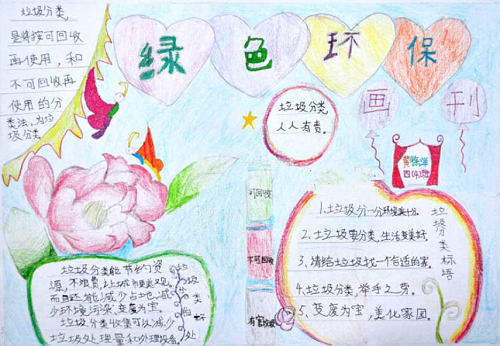 垃圾分类
是将按可回收
再使用，和
不可回收再
使用的分
类法，为垃
圾分类
绿色环保
画刊
垃圾分类
人人有责。
四(4)班
可回收
不可回收
有害垃圾
1.垃圾分一分环境美十分
2、垃圾要分类，生活更美好。
3、请给垃圾找一个合适的家。
4.垃圾分类，举手之劳。
5、变废为宝，美化家园。
垃圾分类标语
垃圾分类能节约资
源，不浪费，让城市更美观。
而且还能减少占地，减
少环境污染，变废为宝。
垃圾分类收集可以减少
垃圾处理量和处理设备。
垃圾分类的好处